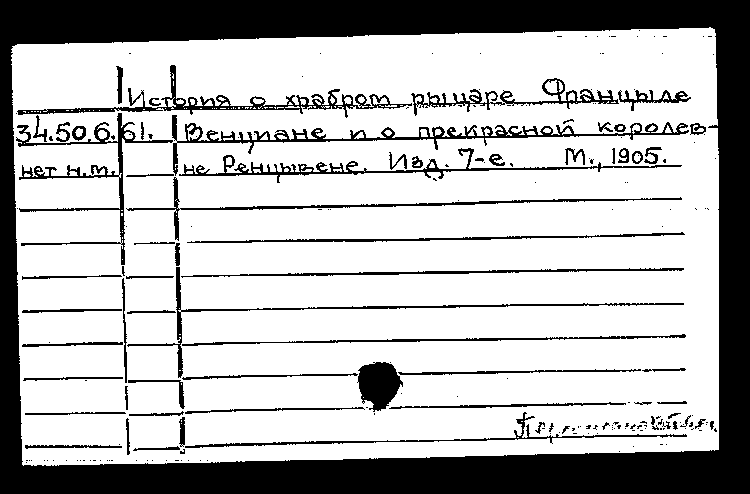 История о храбром рыцаре Францыле
34.50.6.61. Венциане и о прекрасной королев-
нет н.т. не Ренцывене. Изд. 7-е. М., 1905.